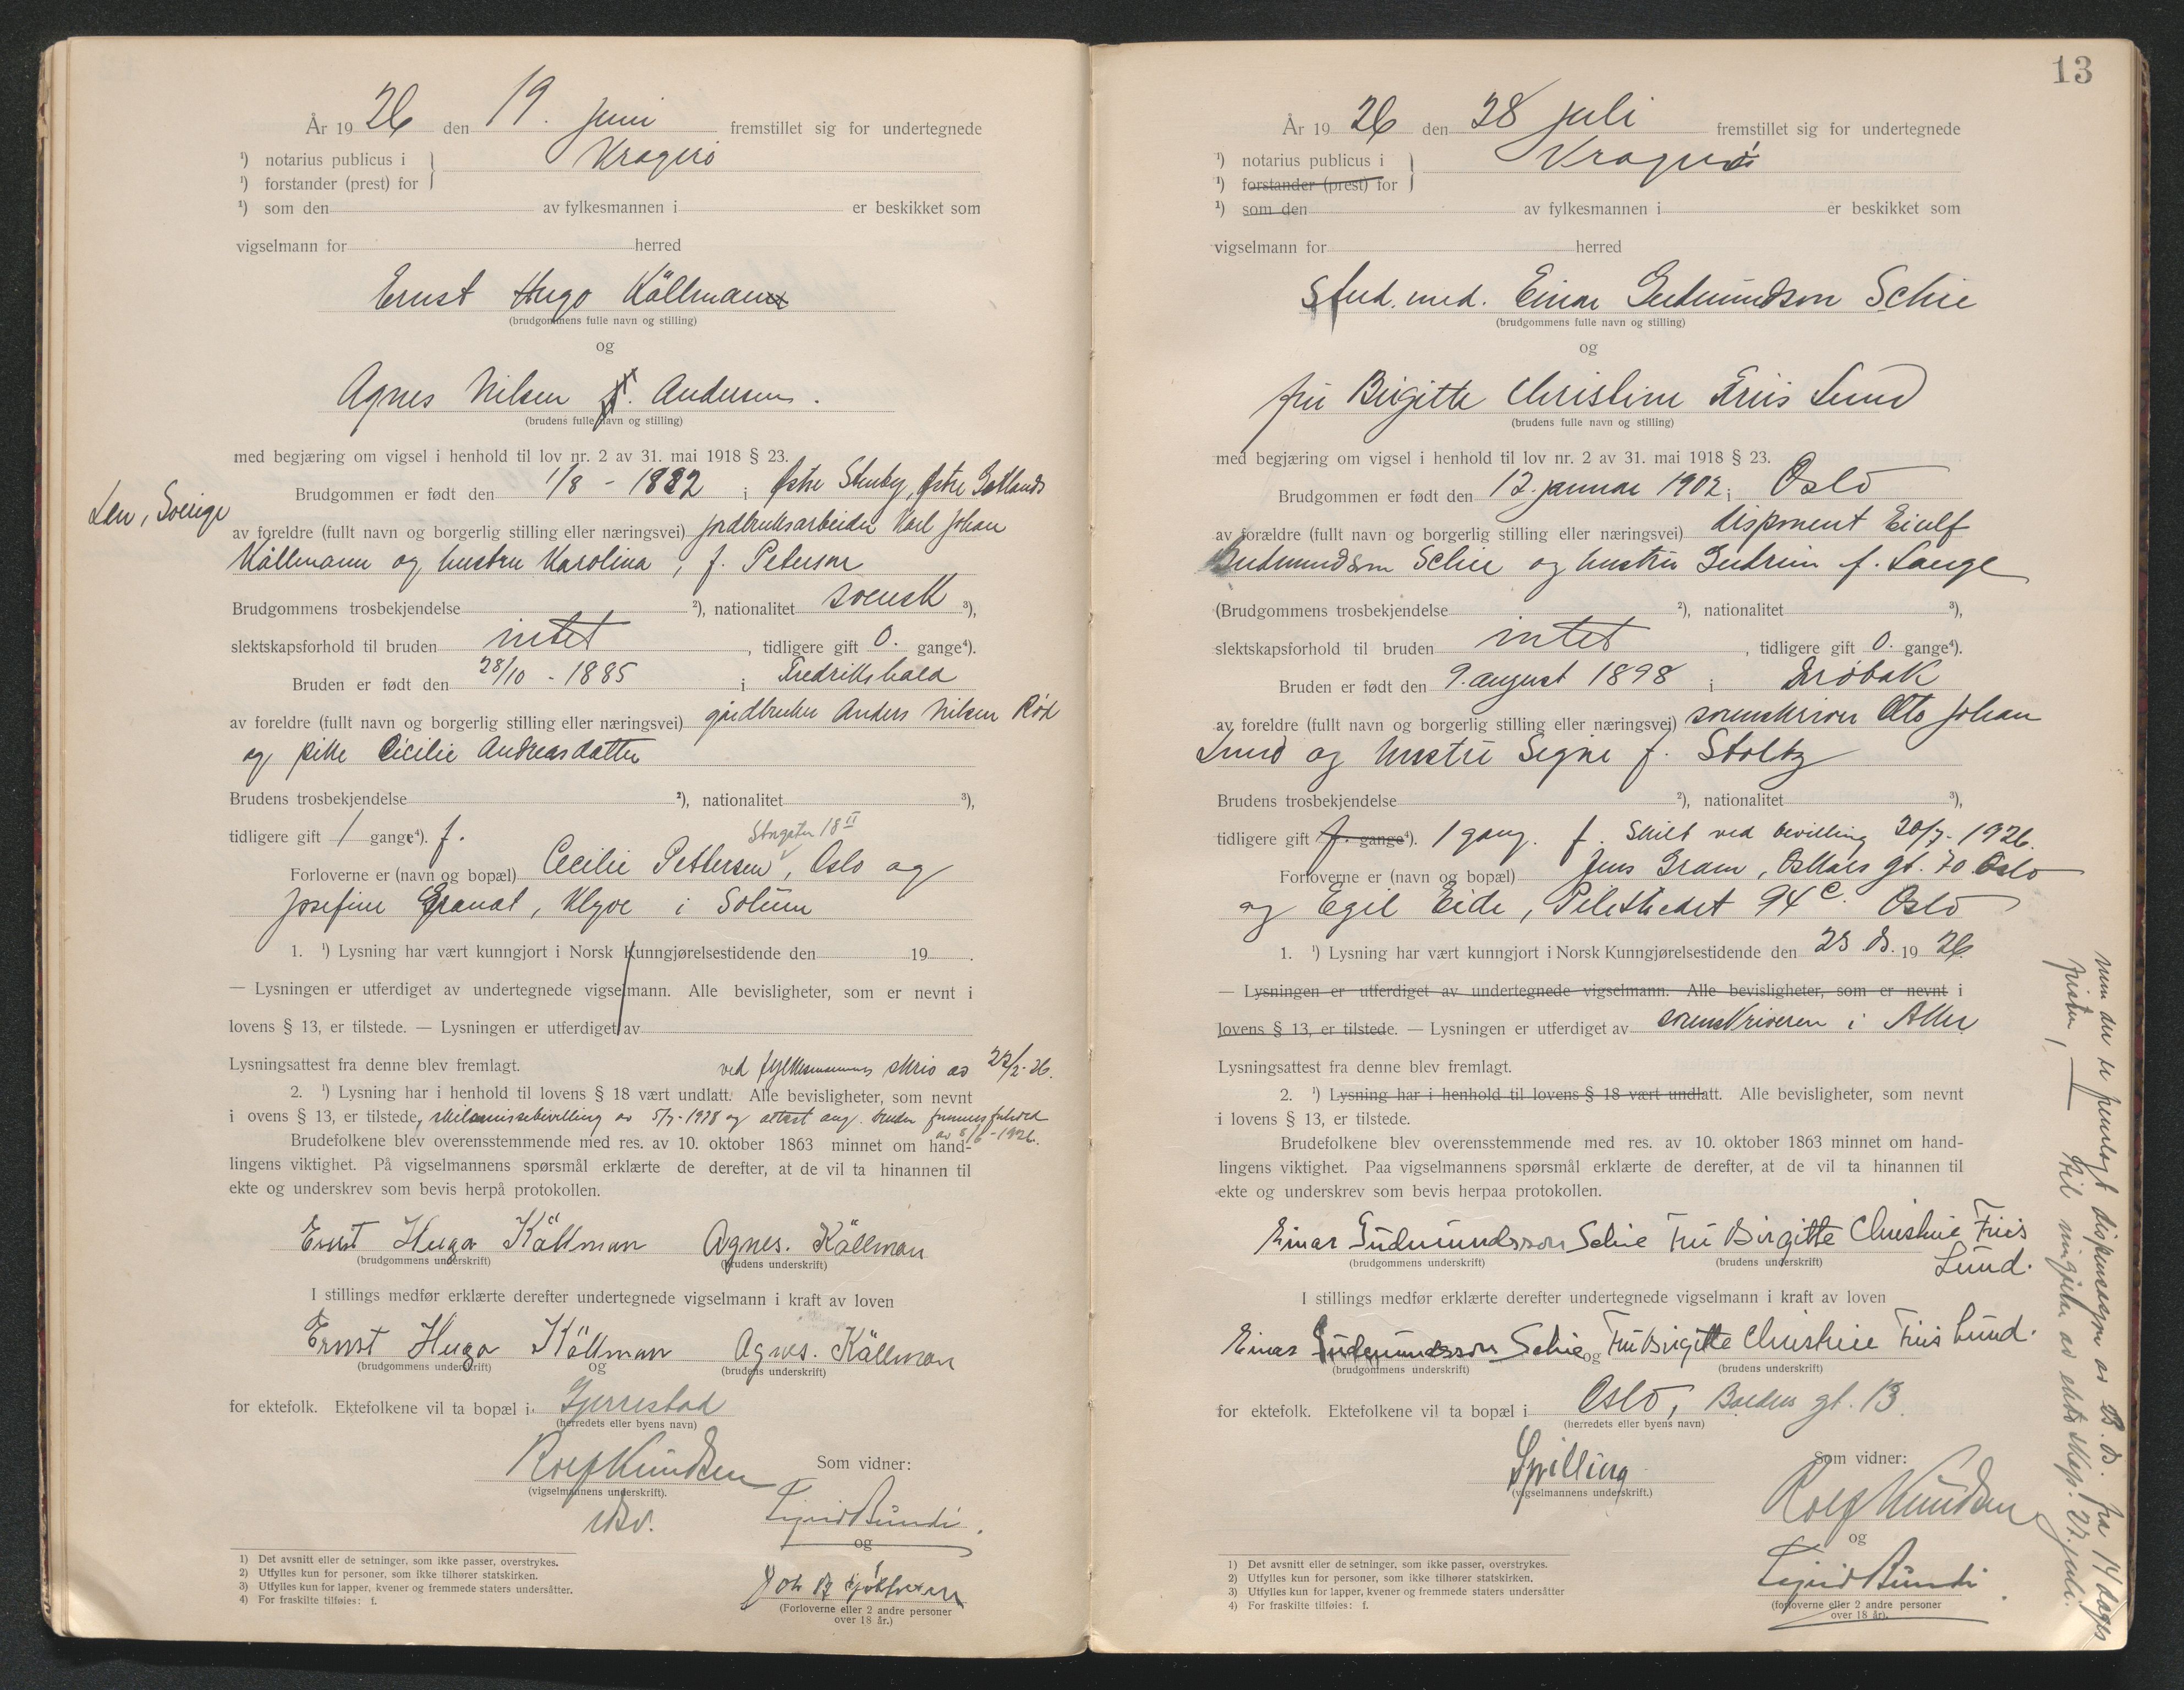 År 1926 den 19. juni fremstillet sig for undertegnede
¹) notarius publicus i } Kragerø
¹) forstander (prest) for
¹) som den av fylkesmannen i er beskikket som
vigselmann for herred
Ernst Hugo Källman
(brudgommens fulle navn og stilling)
og
Agnes Nilsen f. Andersen.
(brudens fulle navn og stilling)
med begjæring om vigsel i henhold til lov nr. 2 av 31. mai 1918 § 23.
Brudgommen er født den 1/8 - 1882 i Østre Stenby, Østre Götlands
Len, Sverige
av foreldre (fullt navn og borgerlig stilling eller næringsvei) jordbruksarbeider Karl Johan
Källmann og hustru Karolina, f. Peterson
Brudgommens trosbekjendelse ²), nationalitet svensk ³),
slektskapsforhold til bruden intet, tidligere gift 0. gange⁴).
Bruden er født den 28/10 - 1885 i Fredrikshald
av foreldre (fullt navn og borgerlig stilling eller næringsvei) gårdbruker Anders Nilsen Rød
og pike Cicilie Andreasdatter
Brudens trosbekjendelse ²), nationalitet ³),
tidligere gift 1 gange⁴). f. Storgaten 18 II
Forloverne er (navn og bopæl) Cecilie Pettersen, Oslo og
Josefine Granat, Klyve i Solum
1. ¹) Lysning har vært kunngjort i Norsk Kunngjørelsestidende den 19 .
— Lysningen er utferdiget av undertegnede vigselmann. Alle bevisligheter, som er nevnt i
lovens § 13, er tilstede. — Lysningen er utferdiget av
Lysningsattest fra denne blev fremlagt. ved fylkesmannens skriv av 22/2-26.
2. ¹) Lysning har i henhold til lovens § 18 vært undlatt. Alle bevisligheter, som nevnt
i ovens § 13, er tilstede, skilsmissebevilling av 5/7-1918 og attest ang. bruden formuesforhold
av 8/6-1926.
Brudefolkene blev overensstemmende med res. av 10. oktober 1863 minnet om hand-
lingens viktighet. På vigselmannens spørsmål erklærte de derefter, at de vil ta hinannen til
ekte og underskrev som bevis herpå protokollen.
Ernst Hugo Källman Agnes. Källman
(brudgommens underskrift) (brudens underskrift)
I stillings medfør erklærte derefter undertegnede vigselmann i kraft av loven
Ernst Hugo Källman Agnes. Källman
(brudgommens underskrift) og (brudens underskrift)
for ektefolk. Ektefolkene vil ta bopæl i Gjerrestad
(herredets eller byens navn)
Rolf Knudsen Som vidner:
(vigselmannens underskrift).
Sigrid Bundi.
og
(Forloverne eller 2 andre personer
over 18 år.)
1) Det avsnitt eller de setninger, som ikke passer, overstrykes.
2) Utfylles kun for personer, som ikke tilhører statskirken.
3) Utfylles kun for lapper, kvener og fremmede staters undersåtter.
4) For fraskilte tilføies: f.
13
År 1926 den 28 juli fremstillet sig for undertegnede
¹) notarius publicus i } Kragerø
¹) forstander (prest) for
¹) som den av fylkesmannen i er beskikket som
vigselmann for herred
Stud. med. Einar Gudmundson Schie
(brudgommens fulle navn og stilling)
og
fru Birgitte Christine Friis Lund
(brudens fulle navn og stilling)
med begjæring om vigsel i henhold til lov nr. 2 av 31. mai 1918 § 23.
Brudgommen er født den 12. januar 1902 i Oslo
av forældre (fullt navn og borgerlig stilling eller næringsvei) disponent Eiulf
Gudmundson Schie og hustru Gudrun f. Lange
(Brudgommens trosbekjendelse ²), nationalitet ³),
slektskapsforhold til bruden intet, tidligere gift 0. gange⁴).
Bruden er født den 9. august 1898 i Drøbak
av foreldre (fullt navn og borgerlig stilling eller næringsvei) sorenskriver Otto Johan
Lund og hustru Signe f. Stoltz
Brudens trosbekjendelse ²), nationalitet ³),
tidligere gift f. gange⁴). 1 gang. f. Skilt ved bevilling 20/7-1926.
Forloverne er (navn og bopæl) Jens Gram, Oskars gt. 70 Oslo
og Egil Eide, Pilestredet 94 C. Oslo
1. ¹) Lysning har vært kunngjort i Norsk Kunngjørelsestidende den 23. ds. 1926.
— Lysningen er utferdiget av undertegnede vigselmann. Alle bevisligheter, som er nevnt i
lovens § 13, er tilstede. — Lysningen er utferdiget av sorenskriveren i Aker
Lysningsattest fra denne blev fremlagt.
2. ¹) Lysning har i henhold til lovens § 18 vært undlatt. Alle bevisligheter, som nevnt
i lovens § 13, er tilstede.
Brudefolkene blev overensstemmende med res. av 10. oktober 1863 minnet om hand-
lingens viktighet. Paa vigselmannens spørsmål erklærte de derefter, at de vil ta hinannen til
ekte og underskrev som bevis herpaa protokollen.
Einar Gudmundsson Schie Fru Birgitte Christine Friis
Lund.
(brudgommens underskrift) (brudens underskrift)
I stillings medfør erklærte derefter undertegnede vigselmann i kraft av loven
Einar Gudmundsson Schie og Fru Birgitte Christine Friis Lund.
(brudgommens underskrift) (brudens underskrift)
for ektefolk. Ektefolkene vil ta bopæl i Oslo, Baldus gt. 13
(herredets eller byens navn)
Spilling Som vidner:
(vigselmannens underskrift.)
Rolf Knudsen
og
Sigrid Bundi.
(forloverne eller 2 andre personer
over 18 år).
1) Det avsnitt eller de setninger, som ikke passer, overstrykes.
2) Utfylles kun for personer, som ikke tilhører statskirken.
3) Utfylles kun for lapper, kvener og fremmede staters undersåtter
4) For fraskilte tilføies: f.
men der er fremlagt dispensasjon av ds. fra 14 dages
fristen, — til inngåen av ekteskap: 27. juli.